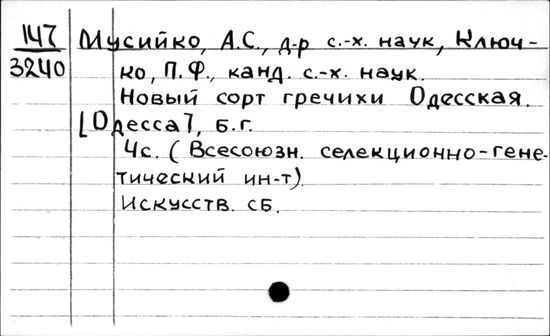 147 Мусийко, А.С., д-р с.-х. наук, Ключ-
3240 ко, П.Ф., канд. с.-х. наук.
Новый сорт гречихи Одесская.
[Одесса], б.г.
4с. (Всесоюзн. селекционно-гене-
тический ин-т).
Искусств. сб.